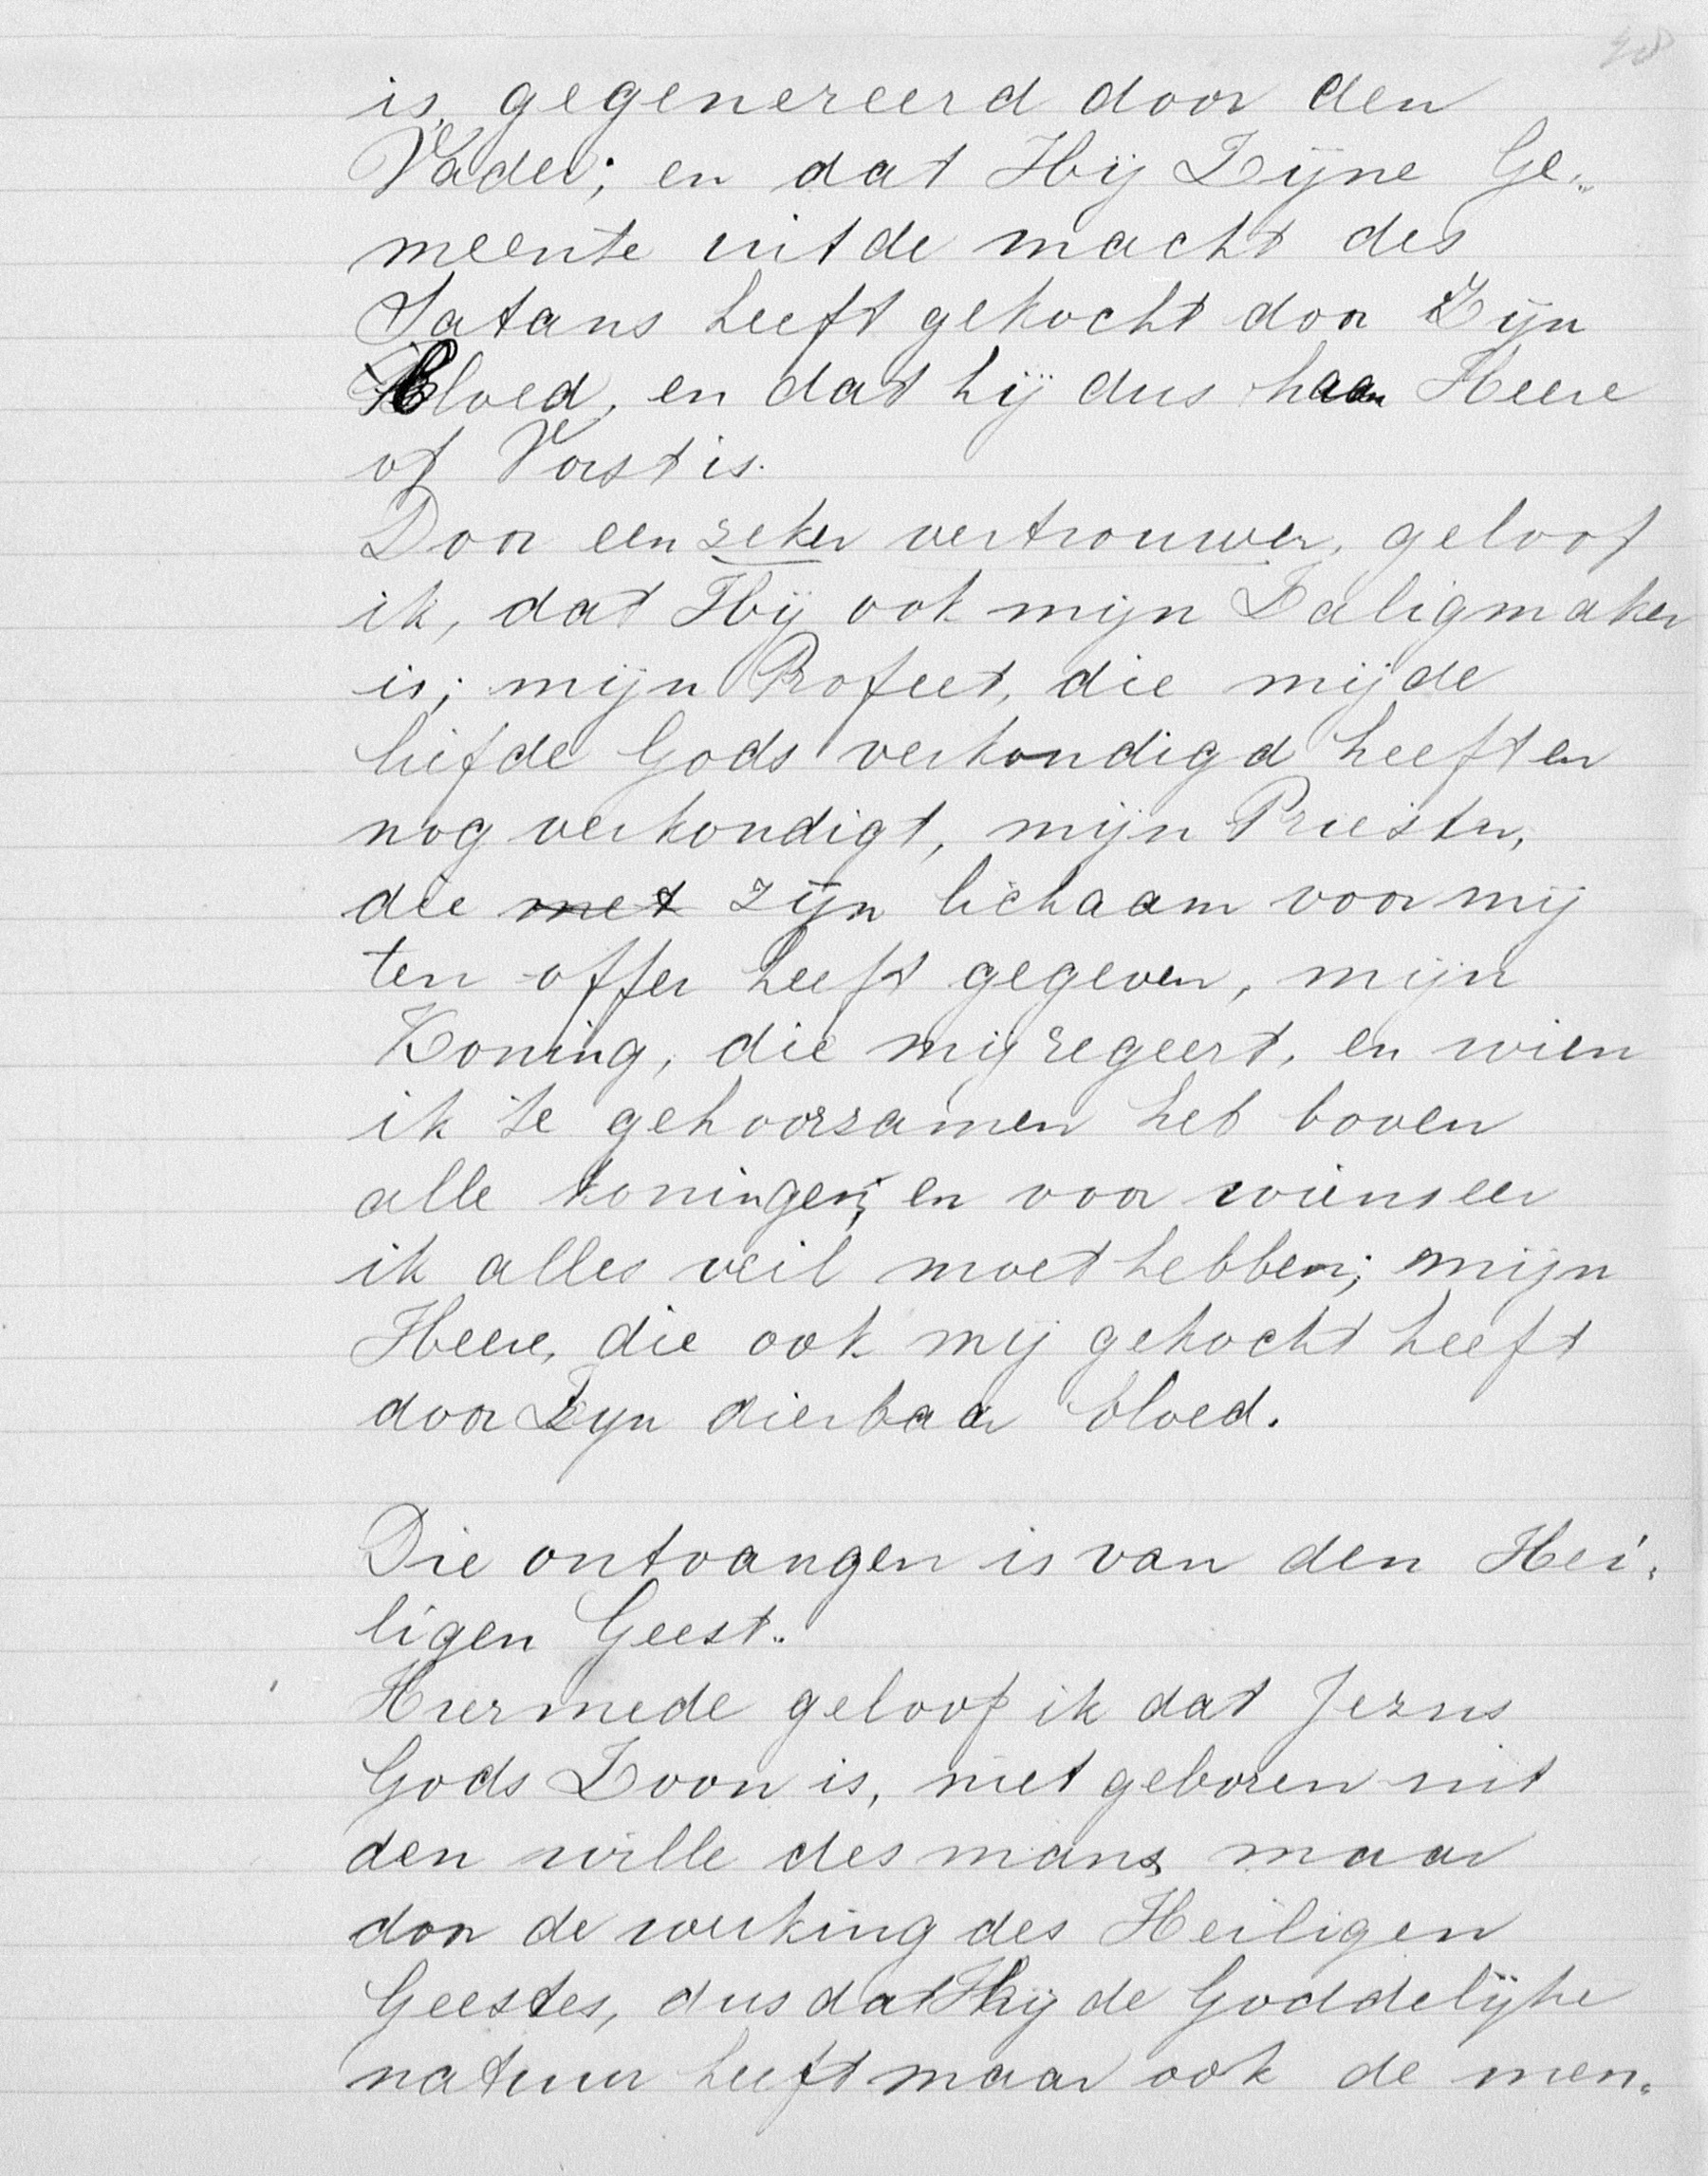 is gegenereerd door den
Vader; en dat Hij Zijne Ge„
meente uit de macht des
Satans heeft gekocht door Zijn
Bloed, en dat hij dus haar Heere
of Vorst is.
Door een zeker vertrouwen, geloof
ik, dat Hij ook mijn Zaligmaker
is; mijn Profeet, die mij de
liefde Gods verkondigd heeft en
nog verkondigt, mijn Priester,
die met zijn lichaam voor mij
ten offer heeft gegeven, mijn
Koning, die mij regeert, en wien
ik te gehoorzamen heb boven
alle koningen; en voor wiens eer
ik alles veil moet hebben; mijn
Heere, die ook mij gekocht heeft
door Zijn dierbaar bloed.
Die ontvangen is van den Hei„
ligen Geest.
Hiermede geloof ik dat Jezus
Gods Zoon is, niet geboren uit
den wille des mans maar
door de werking des Heiligen
Geestes, dus dat Hij de Goddelijke
natuur heeft maar ook de men„